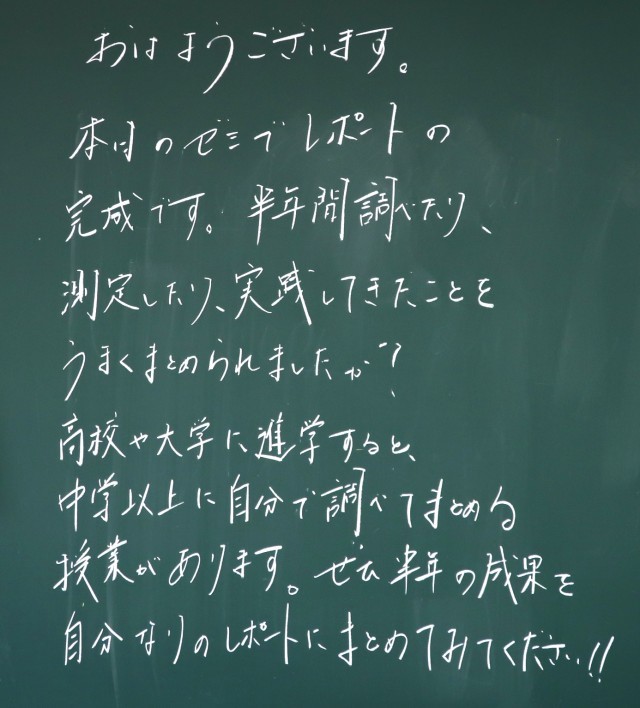 おはようございます。
本日のゼミでレポートの
完成です。半年間調べたり、
測定したり、実践してきたことを
うまくまとめられましたか?
高校や大学に進学すると、
中学以上に自分で調べてまとめる
授業があります。ぜひ半年の成果を
自分なりのレポートにまとめてみてください!!